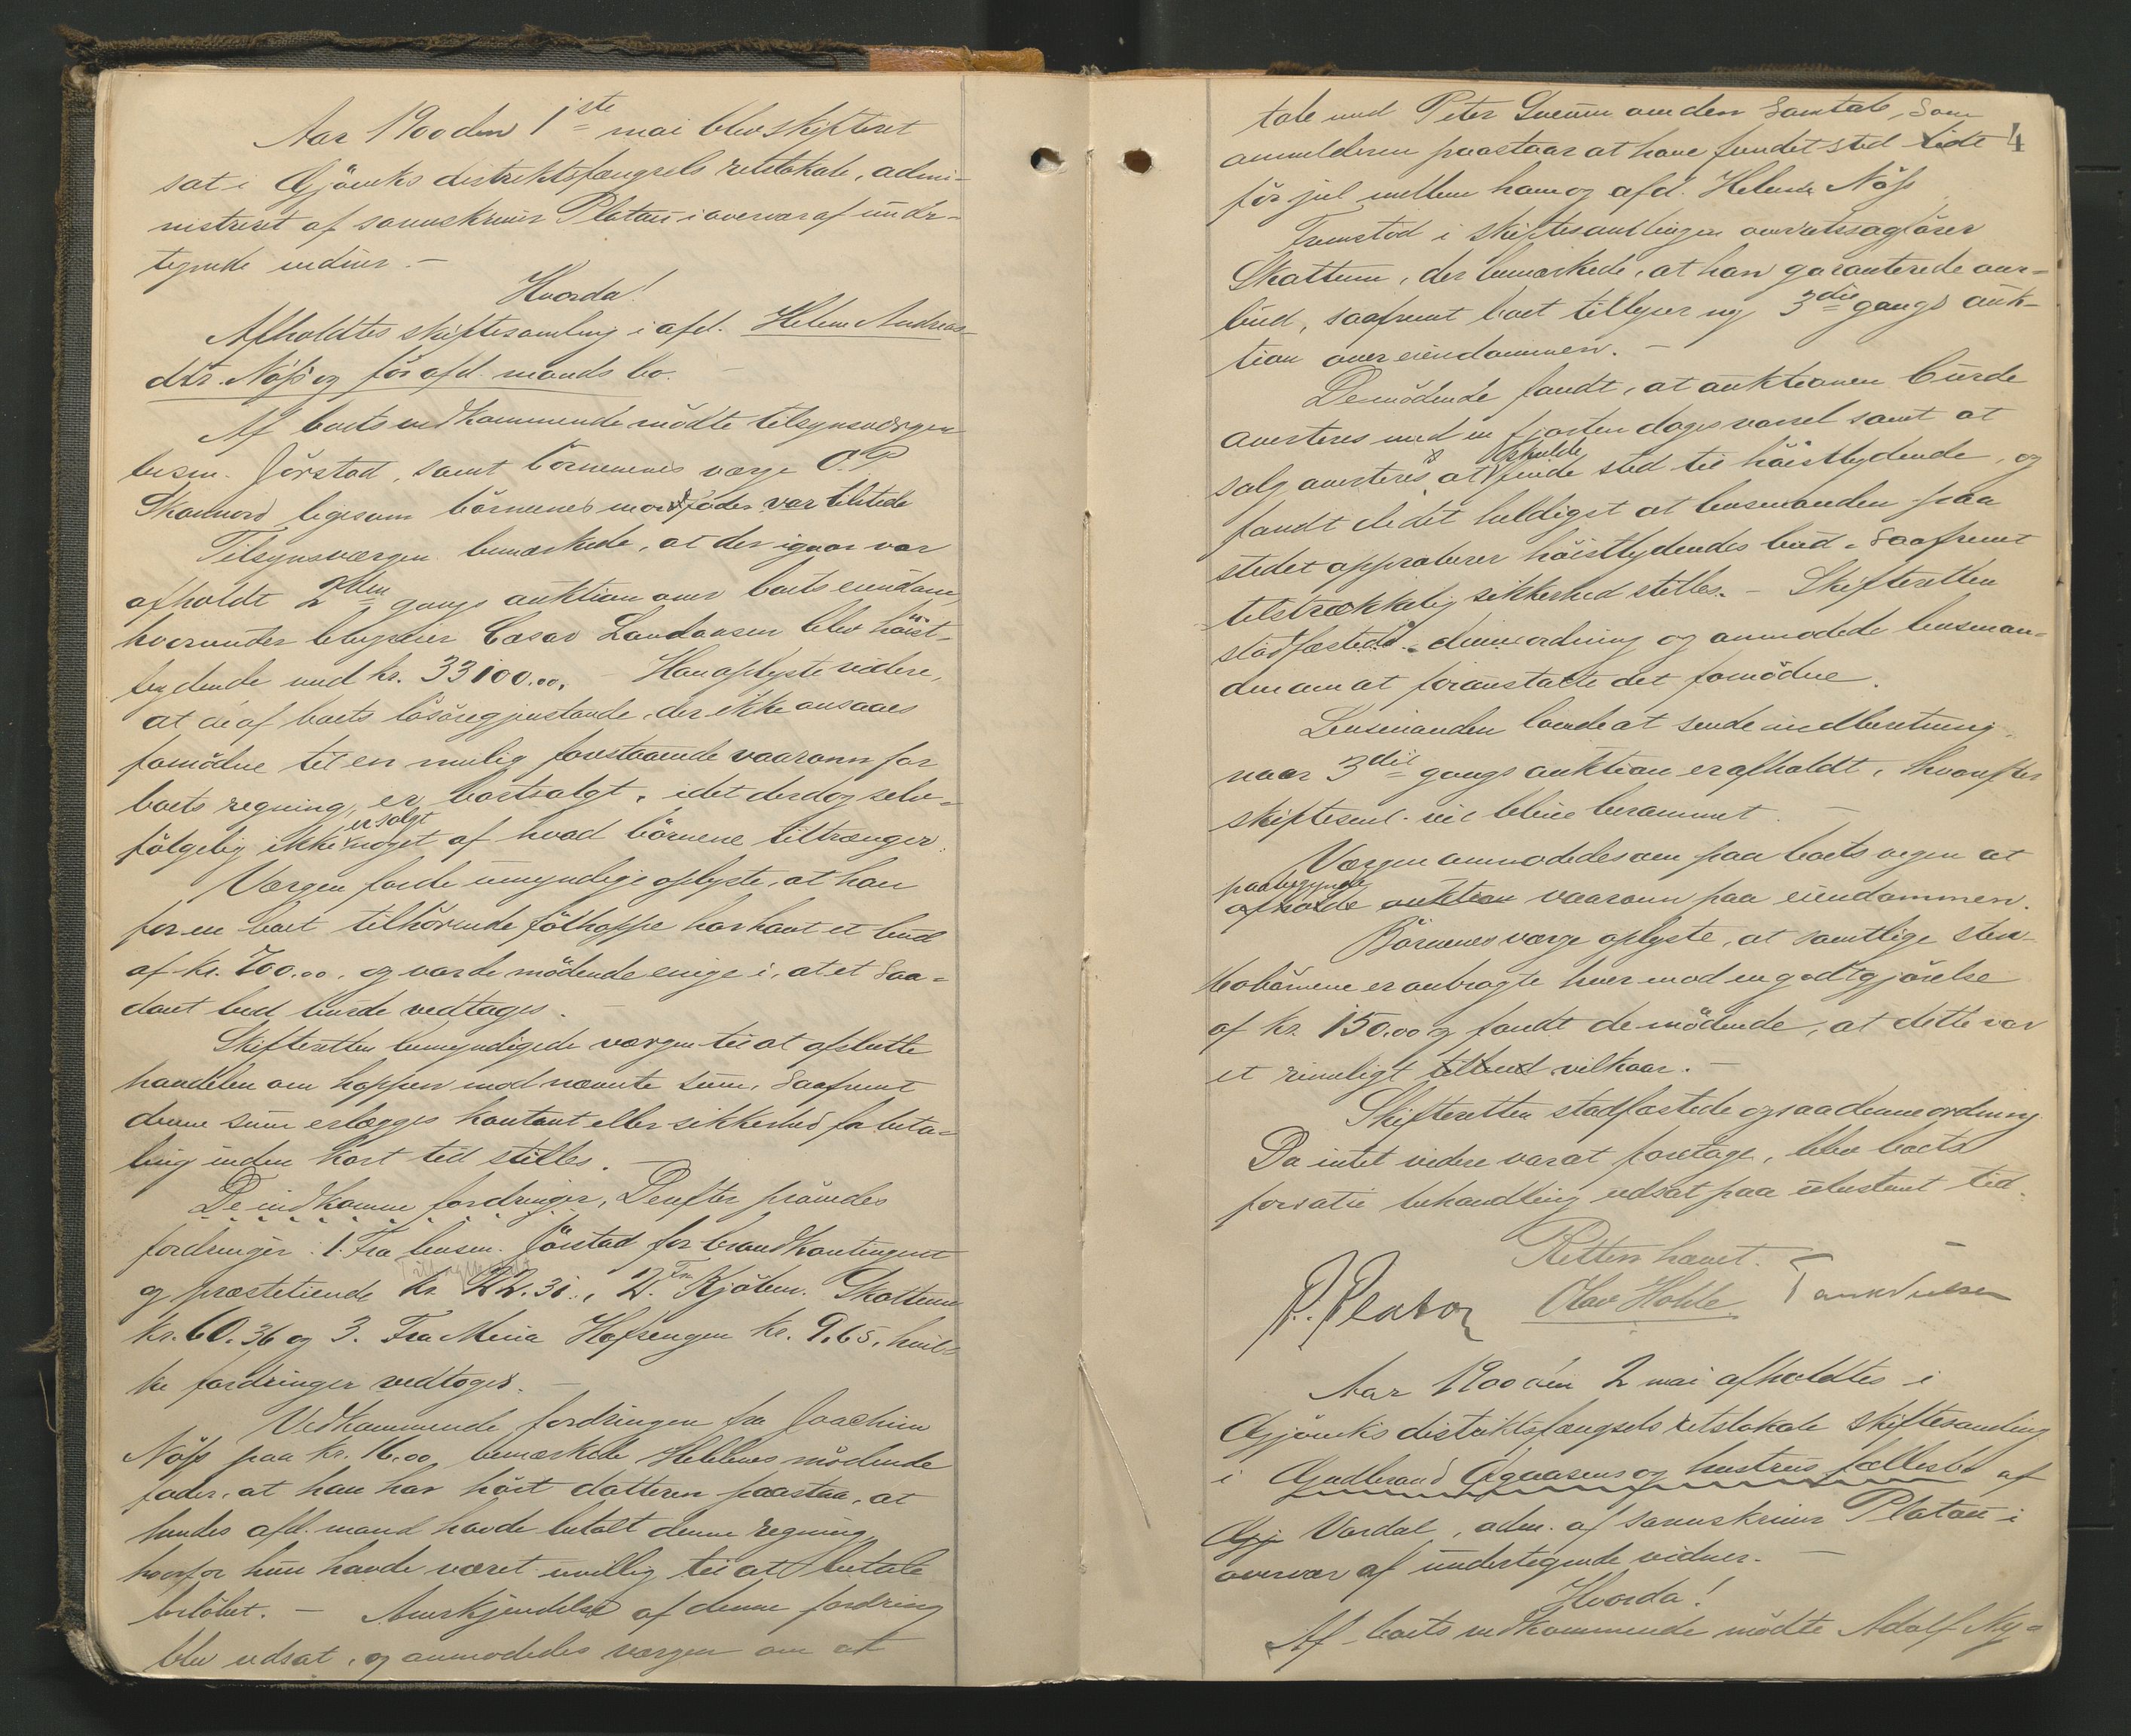 Aar 1900 den 1ste mai blev skifteret
sat i Gjøviks distriktsfængsels retslokale, admi-
nistreret af sorenskriver Platou i overvær af under-
tegnede vidner. -
Hvorda!
Afholdtes skiftesamling i afd. Helene Andreas-
dtr. Nøss og før afd. mands bo. -
Af boets vedkommende mødte tilsynsværgen
lensm. Jørstad, samt børnenes værge O. P.
Skonnord ligesom børnenes morfader var tilstede
Tilsynsværgen bemærkede, at der igaar var
afholdt 2den gangs auktion over boets eiendom,
hvorunder Cæsar Landansen blev høist-
bydende med kr. 33100.00. Han oplyste videre,
at de af boets løsøregjenstande, der ikke ansaaes
fornødne til en mulig forestaaende vaaronn for
boets regning, er bortsolgt, idet der dog selv-
følgelig ikke er solgt noget af hvad børnene tiltrænger.
Værgen for de umyndige oplyste, at han
for en boet tilhørende følhoppe har havt et bud
af kr. 700.00, og var de mødende enige i, at et saa-
dant bud burde vedtages. -
Skifteretten bemyndigede værgen til at afslutte
handelen om hoppen mod nævnte sum, saafremt
denne sum erlægges kontant eller sikkerhed for beta-
ling inden kort tid stilles. -
De indkomne fordringer. Derefter prøvedes
fordringer: 1. Fra lensm. Jørstad for brandkontingent
og præstetiende kr. 22.31, 2. Fra Kjøbm. Skattum
kr. 60.36 og 3. Fra Mina Hofsengen kr. 9.65, hvil-
ke fordringer vedtoges. -
Vedkommende fordringen fra Joachim
Nøss paa kr. 16.00 bemærkede Helenes mødende
fader, at han har hørt datteren paastaa, at
hendes afd. mand havde betalt denne regning,
hvorfor hun havde været uvillig til at betale
beløbet. - Anerkjendelse af denne fordring
blev udsat, og anmodedes værgen om at
tale med Peter om den samtale, som
anmelderen paastaar at have fundet sted lidt
4
før jul mellem ham og afd. Helene Nøss
Fremstod i skiftesamlingen overretssagfører
Skattum, der bemærkede, at han garanterede over-
bud, saafremt boet tillyser ny 3die gangs auk-
tion over eiendommen. -
De mødende fandt, at auktionen burde
averteres med en fjorten dages varsel samt at
salg averteres at skulde finde sted til høistbydende, og
fandt de det heldigst at lensmanden paa
stedet approberer høistbydendes bud, saafremt
tilstrækkelig sikkerhed stilles. - Skifteretten
stadfæstede denne ordning og anmodede lensman-
den om at foranstalte det fornødne.
Lensmanden lovede at sende indberetning,
naar 3die gangs auktion er afholdt, hvorefter
skiftesml. vil blive berammet. -
Værgen anmodedes om paa boets vegne at
paabegynde
afholde auktion vaaronn paa eiendommen.
Børnenes værge oplyste, at samtlige sterv-
bobørnene er anbragte hver mod en godtgjørelse
af kr. 150.00 og fandt de mødende, at dette var
et rimeligt tilbud vilkaar. -
Skifteretten stadfæstede ogsaa denne ordning.
Da intet videre var at foretage, blev boets
forsatte behandling udsat paa ubestemt tid.
Retten hævet. -
P. Platou Olav Hohle
Aar 1900 den 2 mai afholdtes i
Gjøviks distriktsfængsels retslokale skiftesamling
i Gudbrand Agaasens og hustrus fællesbo af
Gjø Vardal, adm. af sorenskriver Platou i
overvær af undertegnede vidner. -
Hvorda!
Af boets vedkommende mødte Adolf My-